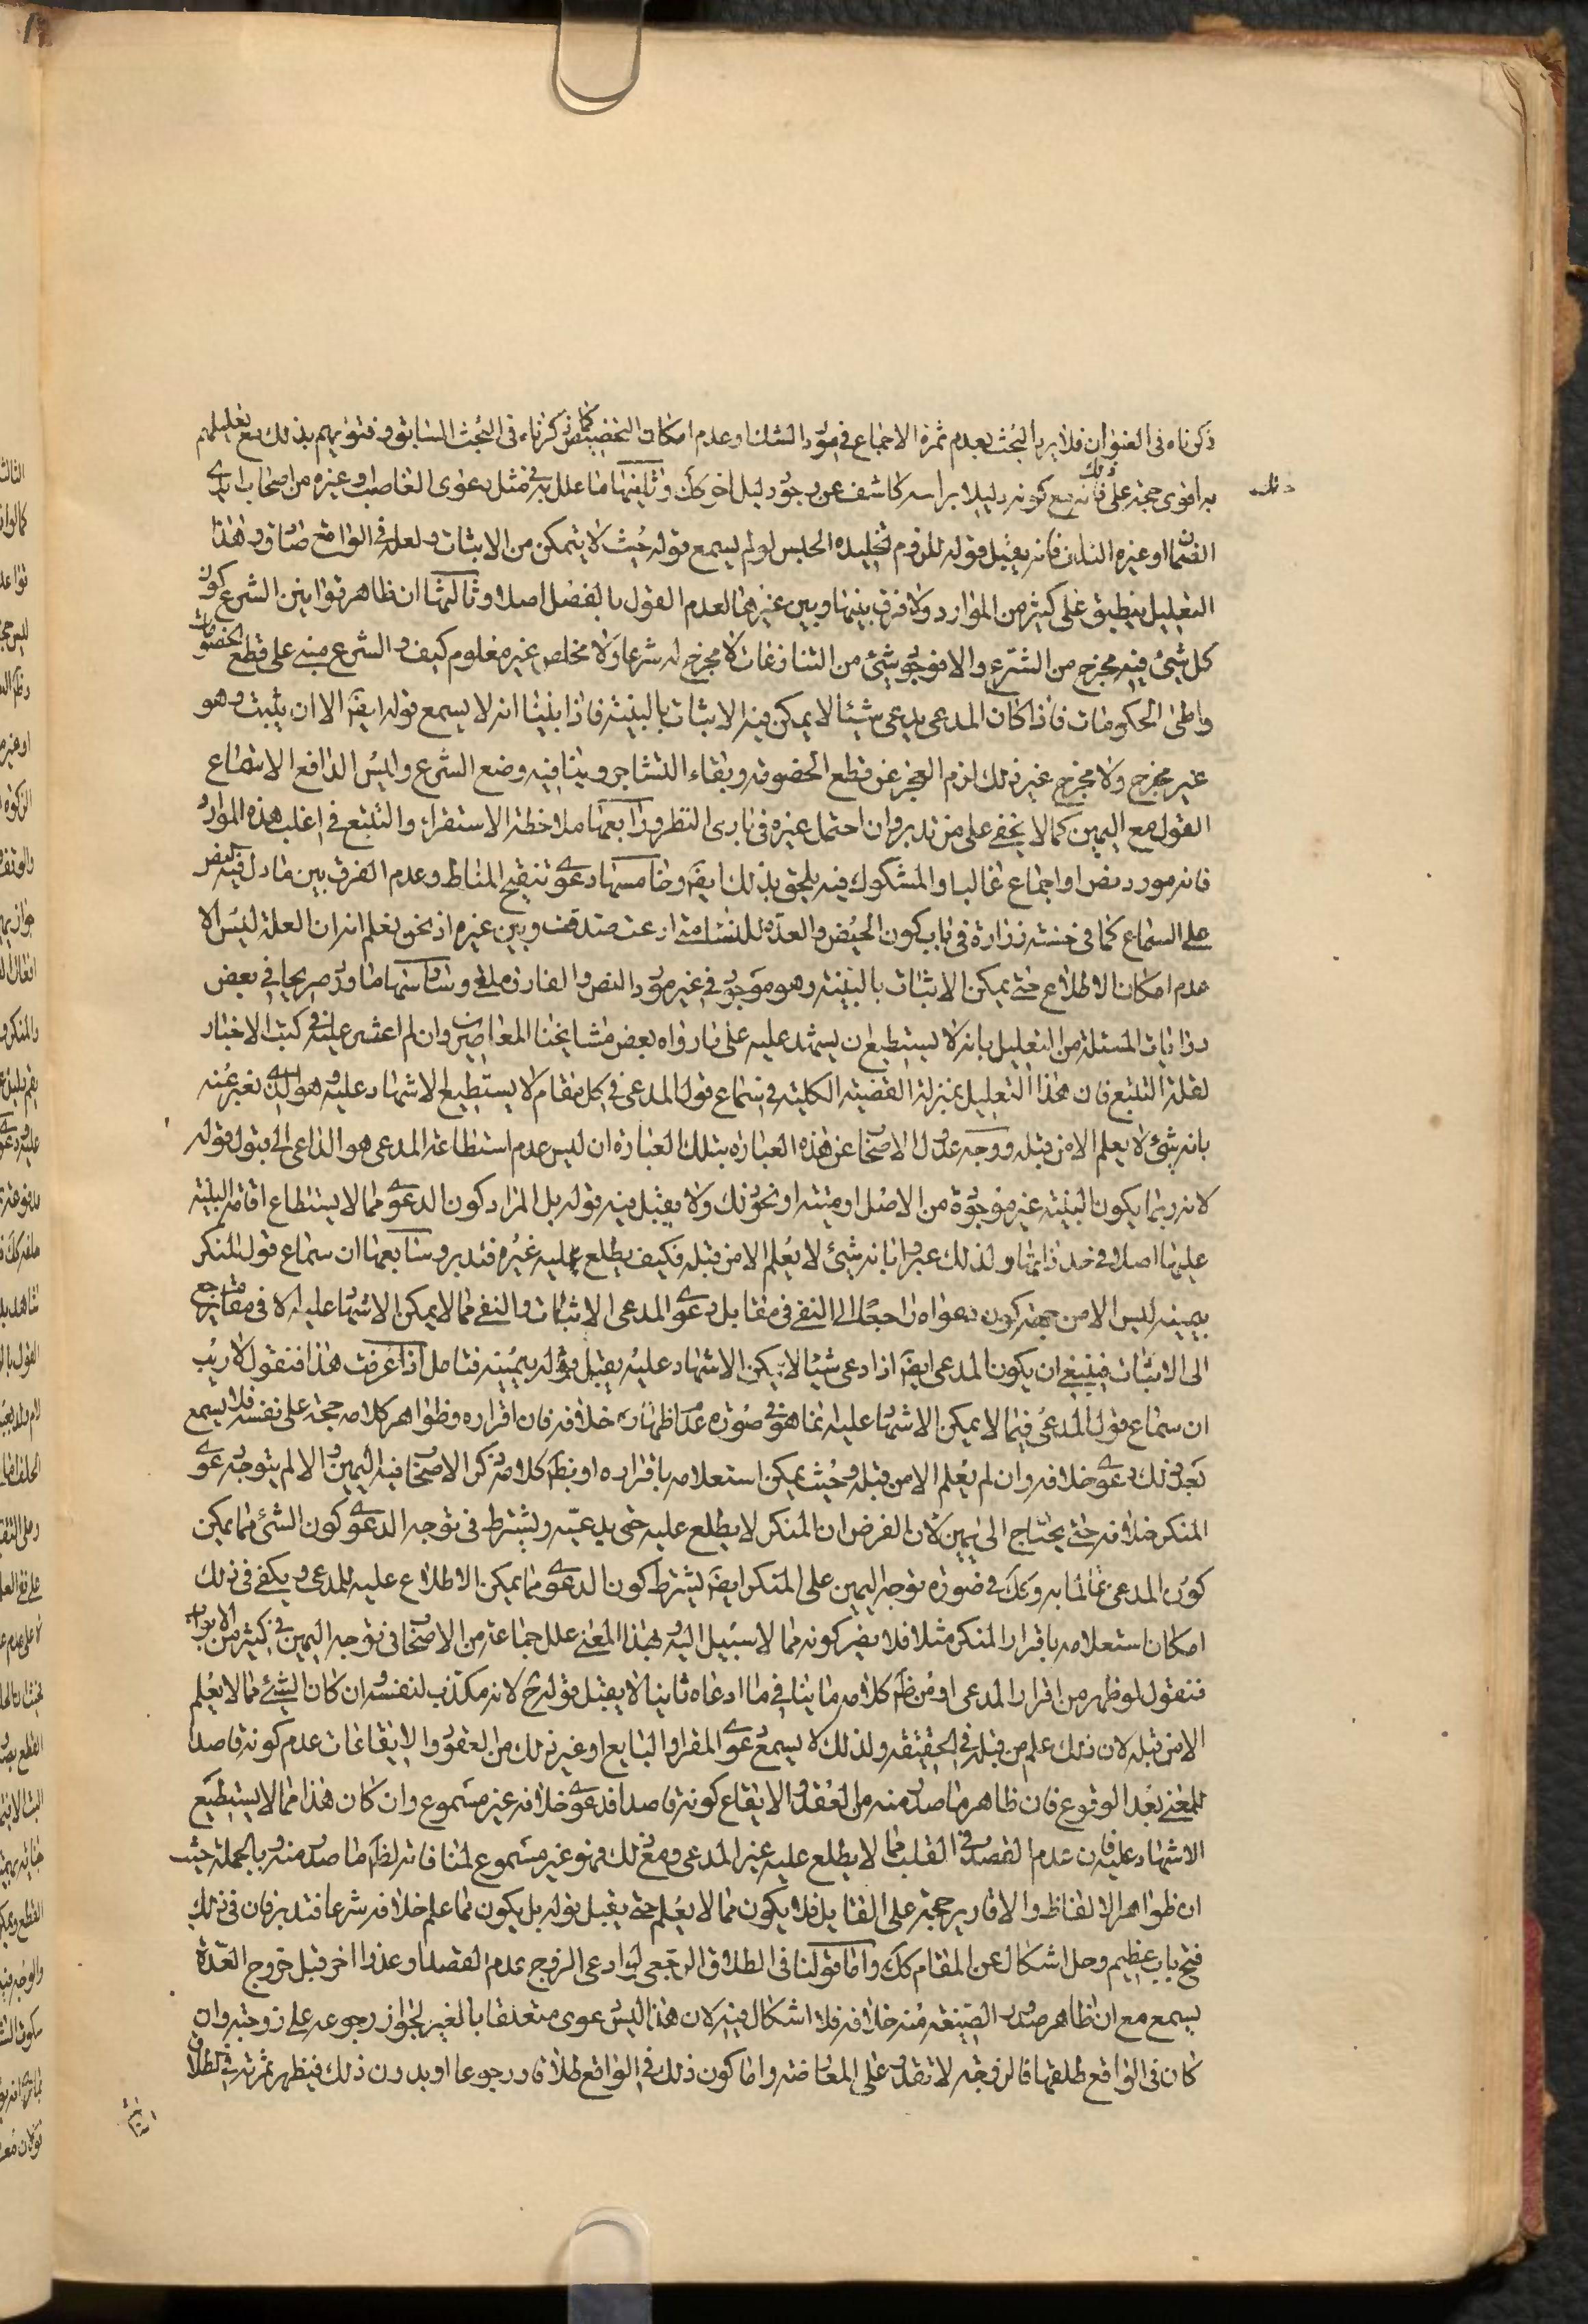 ذكرناه فى العنوان فلا يرد البحث بعدم ثمرة الاجماع فى مورد الشك او عدم امكان التخصيص كما ذكرناه فى البحث السابق وفتويهم بذلك مع تعليلهم
به اقوى حجة على ذلك فانه مع كونه دليلا براسه كاشف عن وجود دليل اخر كك وثانيها ما علل به فى مثل دعوى الغاصب وغيره من اصحاب ايدى
الضمان او غيره التلف فانه يقبل قوله للزوم تخليده الحبس لو لم يسمع قوله حيث لا يتمكن من الاثبات ولعله فى الواقع صادق وهذا
التعليل ينطبق على كثير من الموارد ولا فرق بينها وبين غيرها لعدم القول بالفصل اصلا وثالثها ان ظاهر قوانين الشرع كون
كل شئ فيه مخرج من الشرع والا فوجود شئ من التنازعات لا مخرج له شرعا ولا مخلص غير معلوم كيف والشرع مبنى على قطع الخصومات
واطئ الحكومات فاذا كان المدعى يدعى شيئا لا يمكن فيه الاثبات بالبينة فاذا بنينا انه لا يسمع قوله ايضا الا ان يثبت وهو
غير مخرج ولا مخرج غير ذلك لزم العجز عن قطع الخصومة وبقاء التشاجر وينافيه وضع الشرع وليس الدافع الا سماع
القول مع اليمين كما لا يخفى على من تدبر وان احتمل غيره فى بادى النظر ورابعها ملاحظة الاستقراء والتتبع فى اغلب هذه الموارد
فانه مورد نص او اجماع غالبا والمشكوك فيه يلحق بذلك ايضا وخامسها دعوى تنقيح المناط وعدم الفرق بين ما دل فيه النص
على السماع كما فى حسنة زرارة فى باب كون الحيض والعدة للنساء متى ادعت صدقت وبين غيره اذ نحن نعلم انه ان العلة ليس الا
عدم امكان الاطلاع حتى يمكن الاثبات بالبينة وهو موجود فى غير مورد النص والفارق ملغى وسادسها ما ورد صريحا فى بعض
روايات المسئلة من التعليل بانه لا يستطيع ان يشهد عليه على ما رواه بعض مشايخنا المعاصرين وان لم اعثر عليه فى كتب الاخبار
لقلة التتبع فان هذا التعليل بمنزلة القضية الكلية فى سماع قول المدعى فى كل مقام لا يستطيع الاشهاد عليه وهو الذى نعبر عنه
بانه شئ لا يعلم الا من قبله ووجه عدول الاصحاب عن هذه العبارة بتلك العبارة ان ليس عدم استطاعة المدعى هو الداعى الى قبول قوله
لانه ربما يكون البينة غير موجودة من الاصل او ميتة او نحو ذلك ولا يقبل فيه قوله بل المراد كون الدعوى مما لا يستطاع اقامة البينة
عليها اصلا فى حد ذاتها ولذلك عبروا بانه شئ لا يعلم الا من قبله فكيف يطلع عليه غيره فتدبر وسابعها ان سماع قول المنكر
بيمينه ليس الا من جهة كون دعواه راجعا الى النفى فى مقابل دعوى المدعى الاثبات والنفى مما لا يمكن الاشهاد عليه الا فى مقام يرجع
الى الاثبات فينبغى ان يكون المدعى ايضا اذا ادعى شيئا لا يمكن الاشهاد عليه يقبل قوله بيمينه فتامل اذا عرفت هذا فنقول لا ريب
ان سماع قول المدعى فيما لا يمكن الاشهاد عليه انما هو فى صورة عدم اظهاره خلافه فان اقراره وظواهر كلامه حجة على نفسه فلا يسمع
بعد ذلك دعوى خلافه وان لم يعلم الا من قبله وحيث يمكن استعلامه باقراره او بظاهر كلامه ذكر الاصحاب فيه اليمين والا لم يتوجه دعوى
المنكر خلافه حتى يحتاج الى يمين لان الفرض ان المنكر لا يطلع عليه حتى يدعيه ويشترط فى توجه الدعوى كون الشئ مما يمكن
كون المدعى عالما به وكك فى صورة توجه اليمين على المنكر ايضا يشترط كون الدعوى مما يمكن الاطلاع عليه للمدعى ويكفى فى ذلك
امكان استعلامه باقرار المنكر مثلا فلا يضر كونه مما لا سبيل اليه بهذا المعنى علل جماعة من الاصحاب فى توجه اليمين فى كثير من الابواب
فنقول لو ظهر من اقرار المدعى او من ظاهر كلامه ما ينافى ما ادعاه ثانيا لا يقبل قوله ح لانه مكذب لنفسه وان كان الشئ مما لا يعلم
الا من قبله لان ذلك علم من قبله فى الحقيقة ولذلك لا يسمع دعوى المقر او البايع او غير ذلك من العقود والايقاعات عدم كونه قاصدا
للمعنى بعد الوقوع فان ظاهر ما صدر منه من العقد والايقاع كونه قاصدا فدعوى خلافه غير مسموع وان كان هذا مما لا يستطيع
الاشهاد عليه فان عدم القصد فى القلب مما لا يطلع عليه غير المدعى ومع ذلك فهو غير مسموع لمنافاته لظاهر ما صدر منه وبالجملة حيث
ان ظواهر الالفاظ والاقارير حجة على القايل فلا يكون مما لا يعلم حتى يقبل قوله بل يكون مما علم خلافه شرعا فتدبر فان فى ذلك
فتح باب عظيم وحل اشكال عن المقام كك واما قولنا فى الطلاق الرجعى لو ادعى الزوج عدم القصد او عذرا اخر قبل خروج العدة
يسمع مع ان ظاهر صدور الصيغة منه خلافه فلا اشكال فيه لان هذا ليس دعوى متعلقا بالغير لجواز رجوعه على زوجته وان
كان فى الواقع طلقها فالزوجة لا تقدر على المعارضة واما كون ذلك فى الواقع طلاقا ورجوعا او بدون ذلك فيظهر ثمرته فى الطلاق